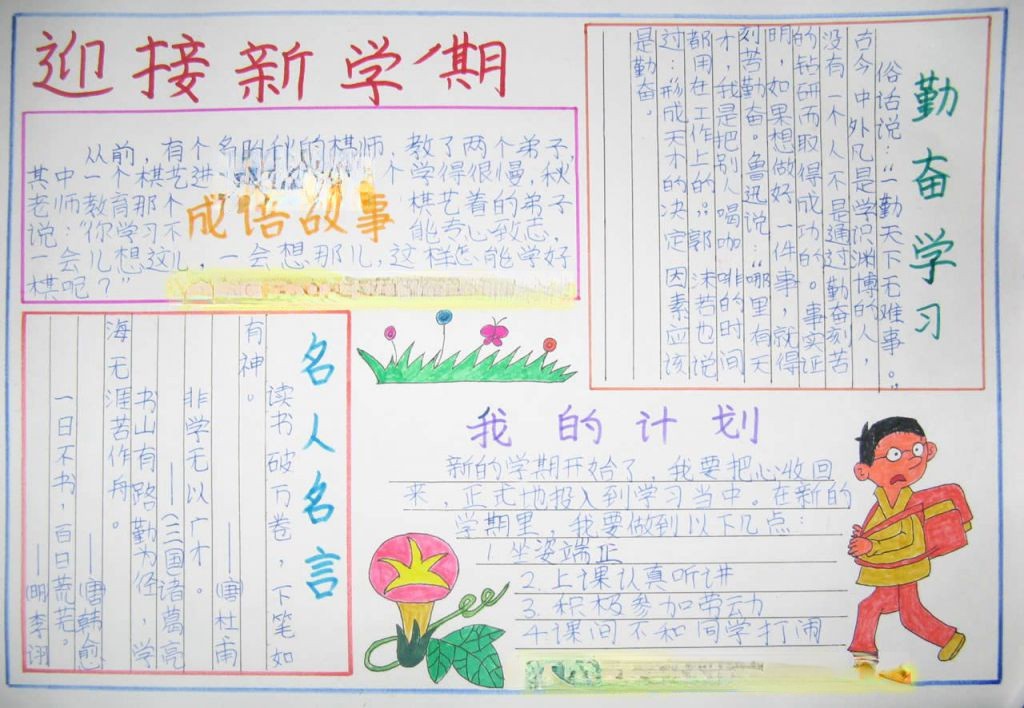 迎接新学期
从前，有个名叫秋的棋师，教了两个弟子，
其中一个棋艺进 个学得很慢，秋
老师教育那个 棋艺着的弟子
说：“你学习不 能专心致志，
一会儿想这儿，一会想那儿，这样怎能学好
棋呢？”
成语故事
勤奋学习
俗话说：“一勤天下无难事。”
古今中外凡是学识渊博的人，
没有一个人不是通过勤奋刻苦
的钻研而取得成功的。事实证
明，如果想做好一件事，就得
刻苦勤奋。鲁迅说：“哪里有天
才，我是把别人喝咖啡的时间
都用在工作上的。”郭沫若也说
过：“形成天才的决定因素应该
是勤奋。
名人名言
读书破万卷，下笔如
有神。
——（唐）杜甫
非学无以广才。
——（三国）诸葛亮
书山有路勤为径，学
海无涯苦作舟。
——（唐）韩愈
一日不书，百日荒芜。
——（明）李诩
我的计划
新的学期开始了，我要把心收回
来，正式地投入到学习当中。在新的
学期里，我要做到以下几点：
1.坐姿端正
2.上课认真听讲
3.积极参加劳动
4.课间不和同学打闹